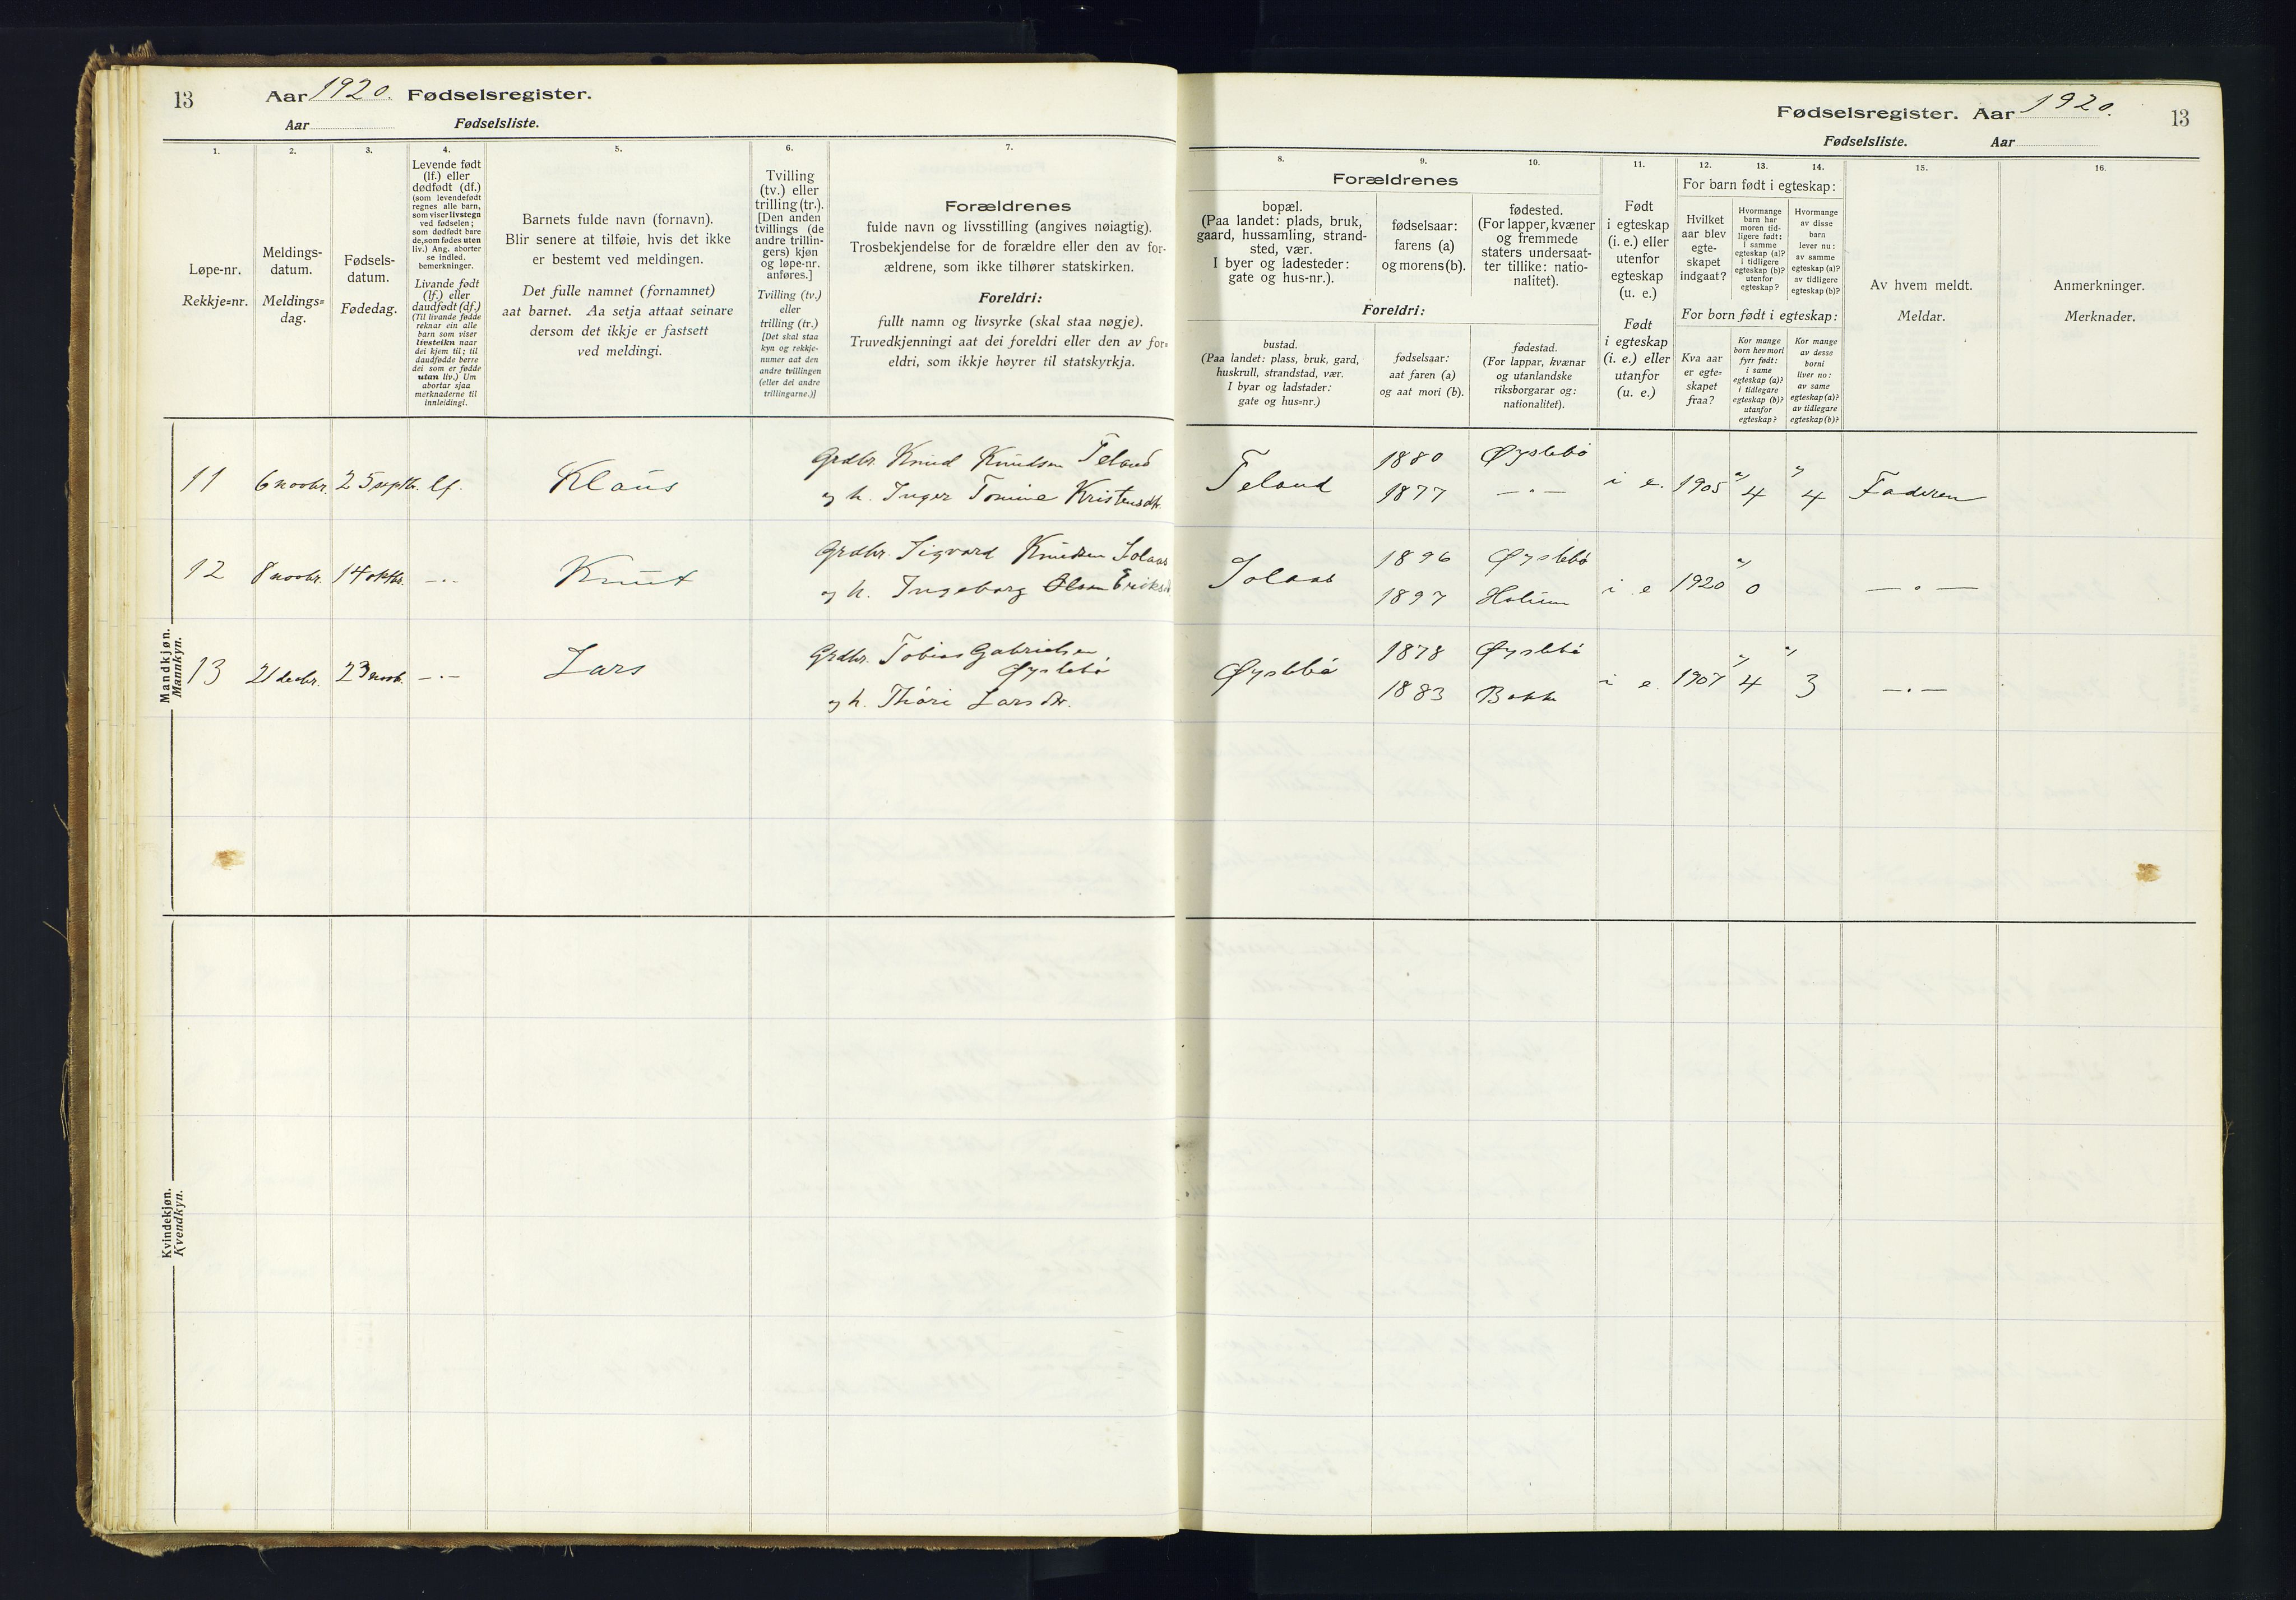 13
Aar 1920. Fødselsregister.
Aar Fødselsliste.
Fødselsregister. Aar 1920.
13
Fødselsliste. Aar
1.
Løpe-nr.
Rekkje=nr.
2.
Meldings-
datum.
Meldings=
dag.
3.
Fødsels-
datum.
Fødedag.
4.
Levende født
(lf.) eller
dødfødt (df.)
(som levendefødt
regnes alle barn,
som viser livstegn
ved fødselen;
som dødfødt bare
de, som fødes uten
liv.) Ang. aborter
se indled.
bemerkninger.
Livande født
(lf.) eller
daudfødt (df.)
(Til livande fødde
reknar ein alle
barn som viser
livsteikn naar
dei kjem til; til
daudfødde berre
dei som er fødde
utan liv.) Um
abortar sjaa
merknaderne til
innleidingi.
5.
Barnets fulde navn (fornavn).
Blir senere at tilføie, hvis det ikke
er bestemt ved meldingen.
Det fulle namnet (fornamnet)
aat barnet. Aa setja attaat seinare
dersom det ikkje er fastsett
ved meldingi.
6.
Tvilling
(tv.) eller
trilling (tr.).
[Den anden
tvillings (de
andre trillin-
gers) kjøn
og løpe-nr.
anføres.]
Tvilling (tv.)
eller
trilling (tr.)
[Det skal staa
kyn og rekkje-
numer aat den
andre tvillingen
(eller dei andre
trillingarne.)]
7.
Forældrenes
fulde navn og livsstilling (angives nøiagtig).
Trosbekjendelse for de forældre eller den av for-
ældrene, som ikke tilhører statskirken.
Foreldri:
fullt namn og livsyrke (skal staa nøgje).
Truvedkjenningi aat dei foreldri eller den av for=
eldri, som ikkje høyrer til statskyrkja.
Forældrenes
8.
bopæl.
(Paa landet: plads, bruk,
gaard, hussamling, strand-
sted, vær.
I byer og ladesteder:
gate og hus-nr.).
9.
fødselsaar:
farens (a)
og morens (b).
10.
fødested.
(For lapper, kvæner
og fremmede
staters undersaat-
ter tillike: natio-
nalitet).
Foreldri:
bustad.
(Paa landet: plass, bruk, gard,
huskrull, strandstad, vær.
I byar og ladstader:
gate og hus=nr.)
fødselsaar:
aat faren (a)
og aat mori (b).
fødestad.
(For lappar, kvænar
og utanlandske
riksborgarar og:
nationalitet).
11.
Født
i egteskap
(i. e.) eller
utenfor
egteskap
(u. e.)
Født
i egteskap
(i. e.) eller
utanfor
(u. e.)
For barn født i egteskap:
12.
Hvilket
aar blev
egte-
skapet
indgaat?
13.
Hvormange
barn har
moren tid-
ligere født:
i samme
egteskap (a)?
i tidligere
egteskap (b)?
utenfor
egteskap?
14.
Hvormange
av disse
barn
lever nu:
av samme
egteskap (a)?
av tidligere
egteskap (b)?
For born født i egteskap:
Kva aar
er egte=
skapet
fraa?
Kor mange
born hev mori
fyrr født:
i same
egteskap (a)?
i tidlegare
egteskap (b)?
utanfor
egteskap?
Kor mange
av desse
borni
liver no:
av same
egteskap (a)?
av tidlegare
egteskap (b)?
15.
Av hvem meldt.
Meldar.
16.
Anmerkninger.
Merknader.
Mandkjøn.
Mannkyn.
11 6 novbr. 25 septbr. lf. Klaus Grdbr. Knud Knudsen Teland
og h. Inger Tomine Kristensdtr. Teland 1880 Øyslebø
1877 —„— i e. 1905 a/4 a/4 Faderen
12 8 novbr. 14 oktbr. —„— Knut Grdbr. Sigvard Knudsen Solaas
og h. Ingeborg Olsen Eriksd. Solaas 1896 Øyslebø
1897 Holum i e 1920 a/0 —„—
13 21 decbr. 23 novb. —„— Lars Grdbr. Tobias Gabrielsen
Øyslebø
og h. Thóri Larsdtr. Øyslebø 1878 Øyslebø
1883 Bakke i e. 1907 a/4 a/3 —„—
Kvindekjøn.
Kvendkyn.